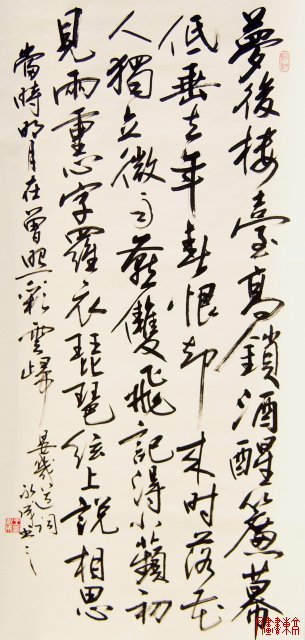 夢後樓臺高鎖酒醒簾幕
低垂去年春恨却来時落花
人獨立微雨燕雙飛記得小蘋初
見兩重心字羅衣琵琶絃上說相思
當時明月在曾照彩雲歸
晏幾道詞
書之